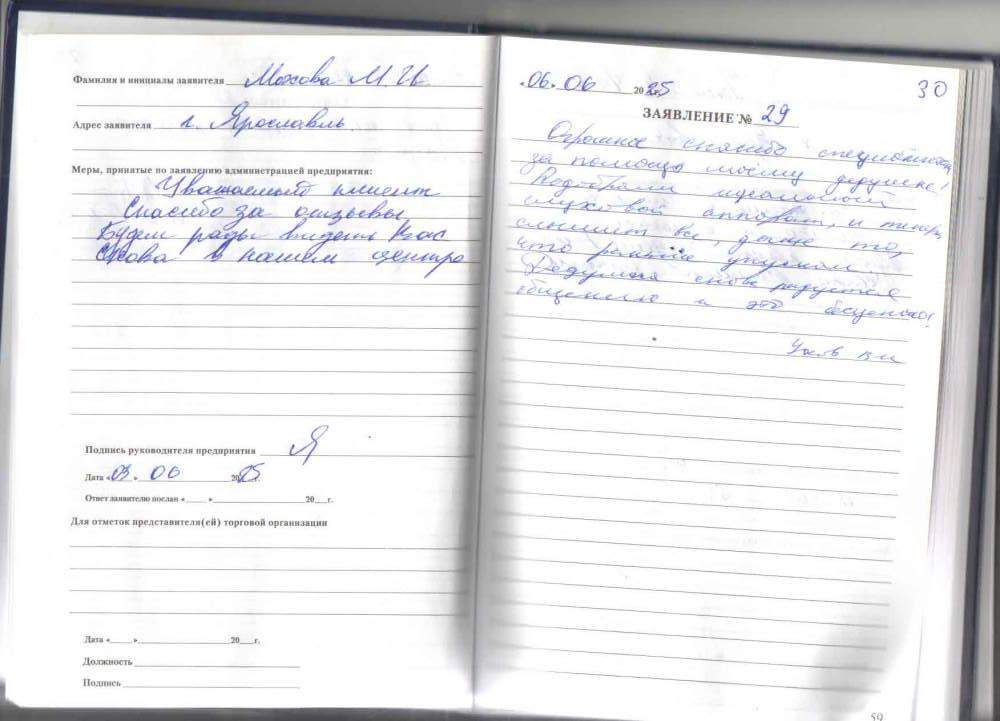 Фамилия и инициалы заявителя Мохова М. И.
Адрес заявителя г. Ярославль
Меры, принятые по заявлению администрацией предприятия:
Уважаемый клиент
Спасибо за отзывы
Будем рады видеть Вас
Снова в нашем центре
Подпись руководителя предприятия Я
Дата «03» 06 2025г.
Ответ заявителю послан «___» ___ 20__г.
Для отметок представителя(ей) торговой организации
Дата «___» ___ 20__г.
Должность
Подпись
30
«06» 06 2025
ЗАЯВЛЕНИЕ № 29
Огромное спасибо специалистам
за помощь моему дедушке!
Подобрали идеальный
слуховой аппарат, и теперь
слышит все, даже то,
что раньше упускал.
Дедушка снова радуется
общению и это бесценно!
59